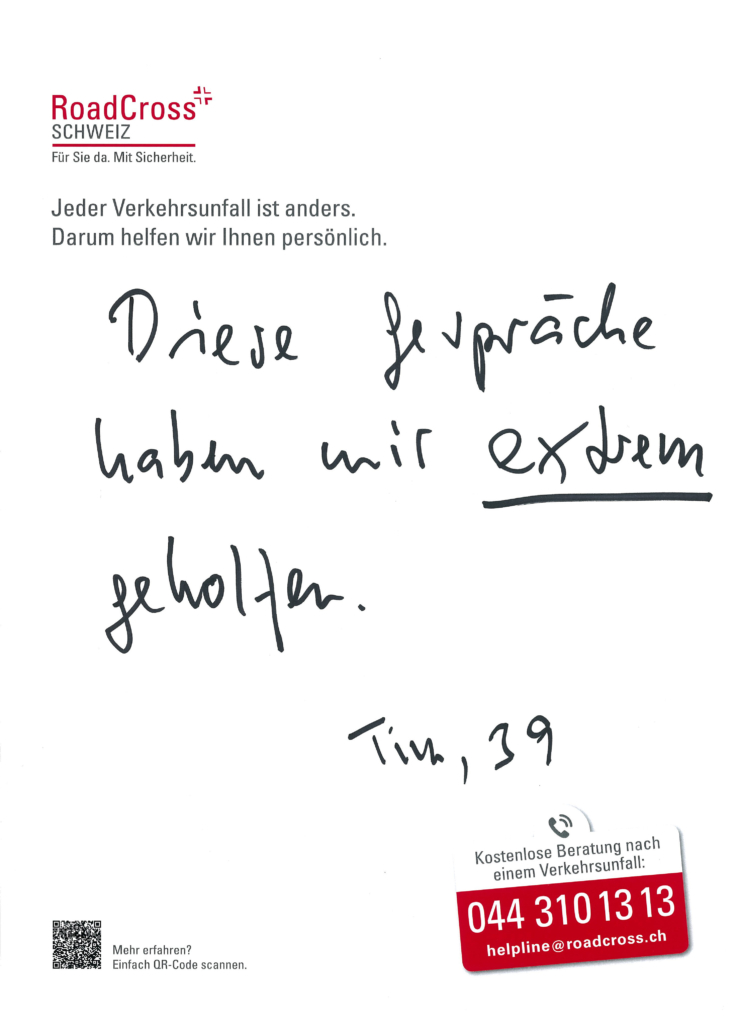 RoadCross
SCHWEIZ
Für Sie da. Mit Sicherheit.
Jeder Verkehrsunfall ist anders.
Darum helfen wir Ihnen persönlich.
Diese Gespräche
haben mir extrem
geholfen.
Tim, 39
Kostenlose Beratung nach
einem Verkehrsunfall:
044 310 13 13
helpline@roadcross.ch
Mehr erfahren?
Einfach QR-Code scannen.